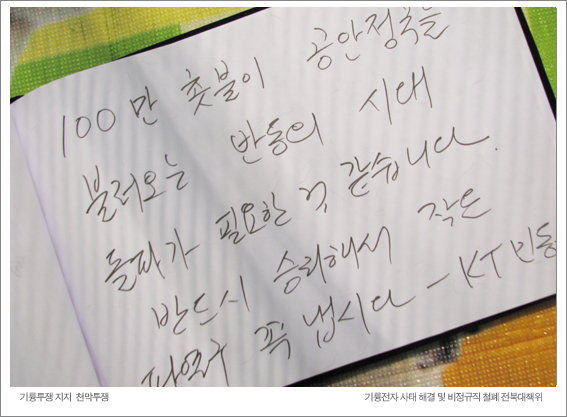 100만 촛불이 공안정국을
불러오는 반동의 시대
돌파가 필요한 것 같습니다.
반드시 승리해서 작은
파열구 꼭 냅시다 - KT민동
기륭투쟁 지지 천막투쟁
기륭전자 사태 해결 및 비정규직 철폐 전북대책위